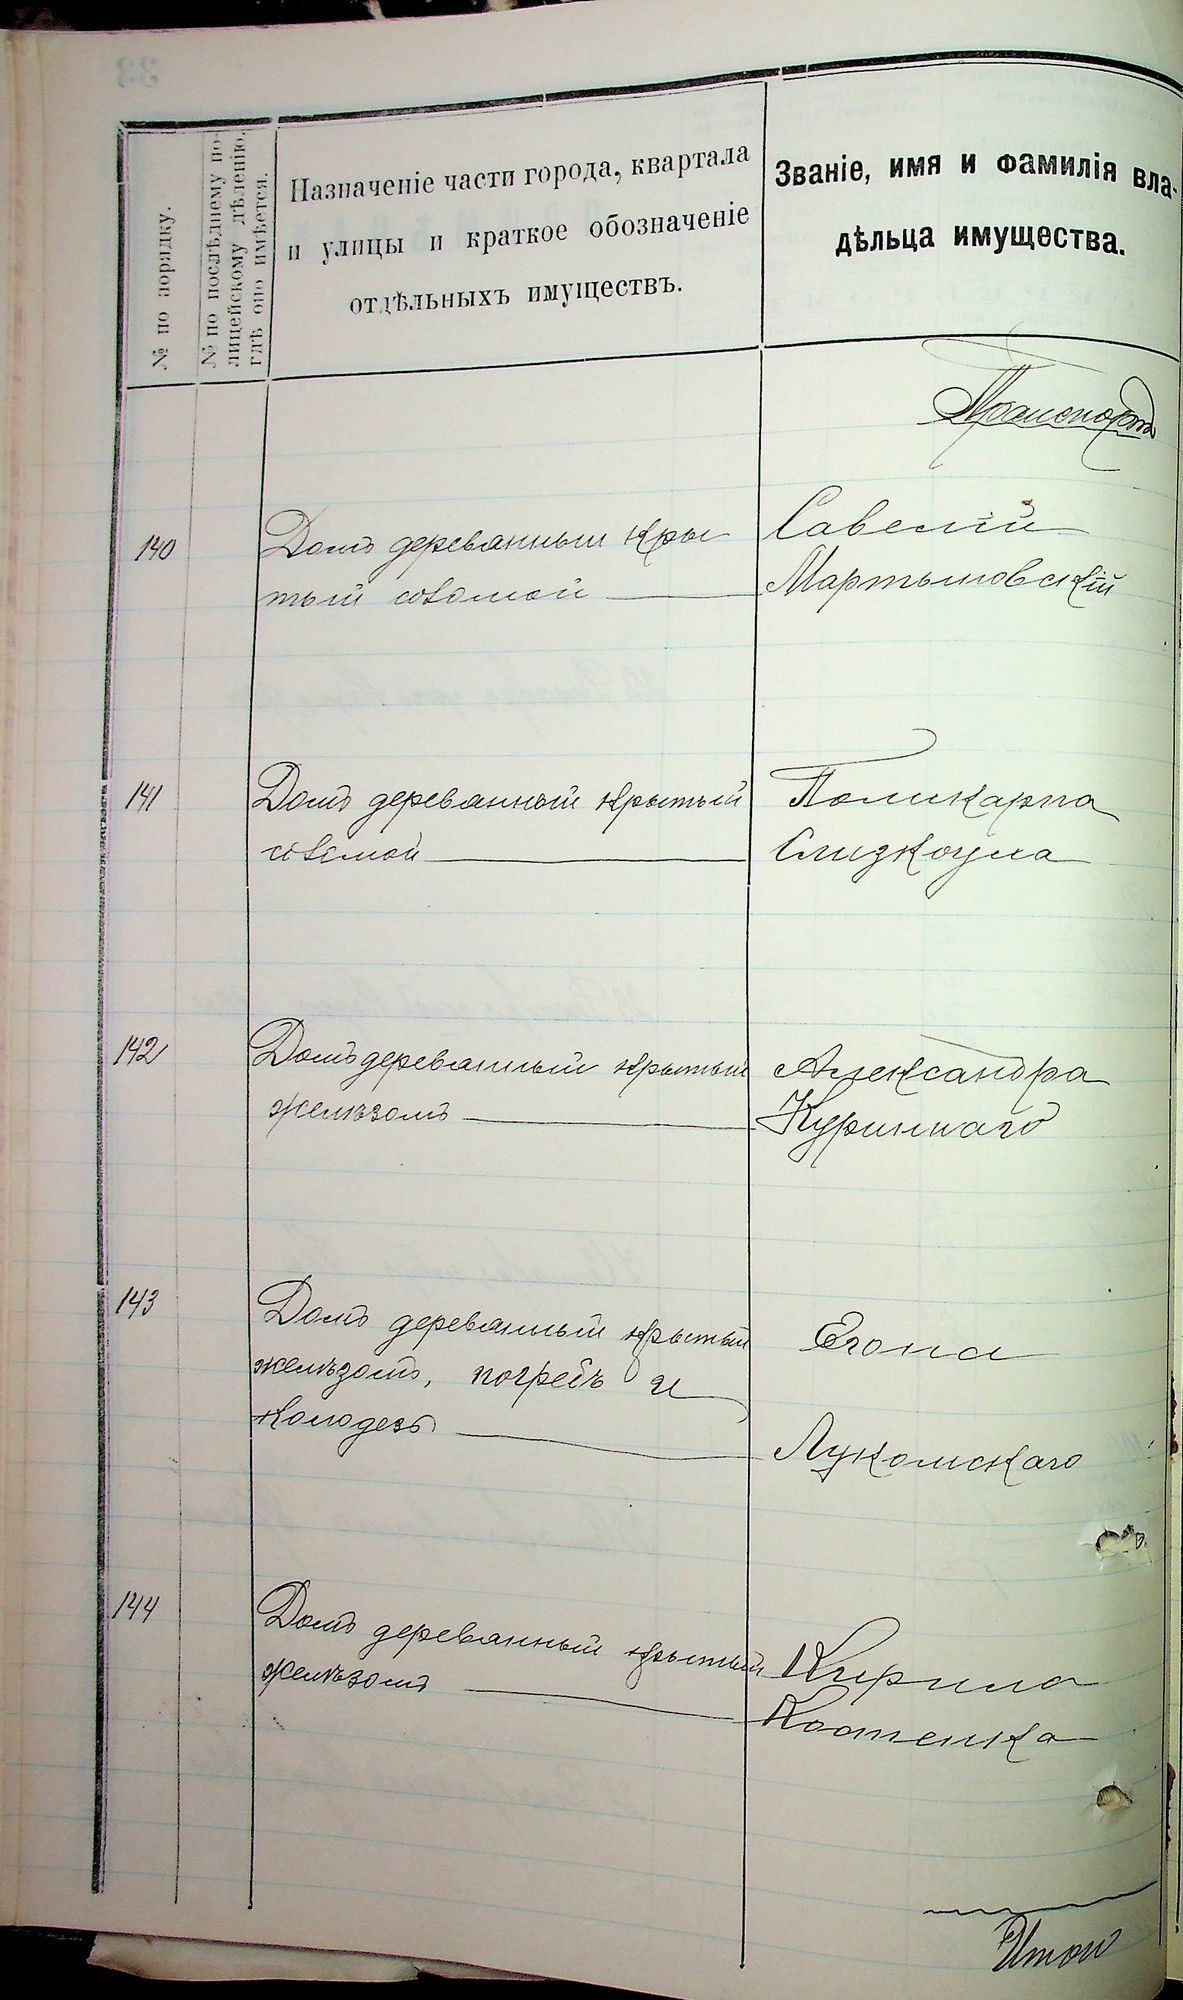 № по порядку.
№ по послѣднему по-
лицейскому дѣленію,
гдѣ оно имѣется.
Назначеніе части города, квартала
и улицы и краткое обозначеніе
отдѣльныхъ имуществъ.
Званіе, имя и фамилія вла-
дѣльца имущества.
Транспортъ
140
Домъ деревянный кры
тый соломой
Савелій
Мартыновскій
141
Домъ деревянный крытый
соломой
Поликарпа
Слизкоуха
142
Домъ деревянный крытый
желѣзомъ
Александра
143
Домъ деревянный крытый
желѣзомъ, погребъ и
колодезь
Лукомскаго
144
Домъ деревянный крытый
желѣзомъ
Кирила
Костенка
Итого